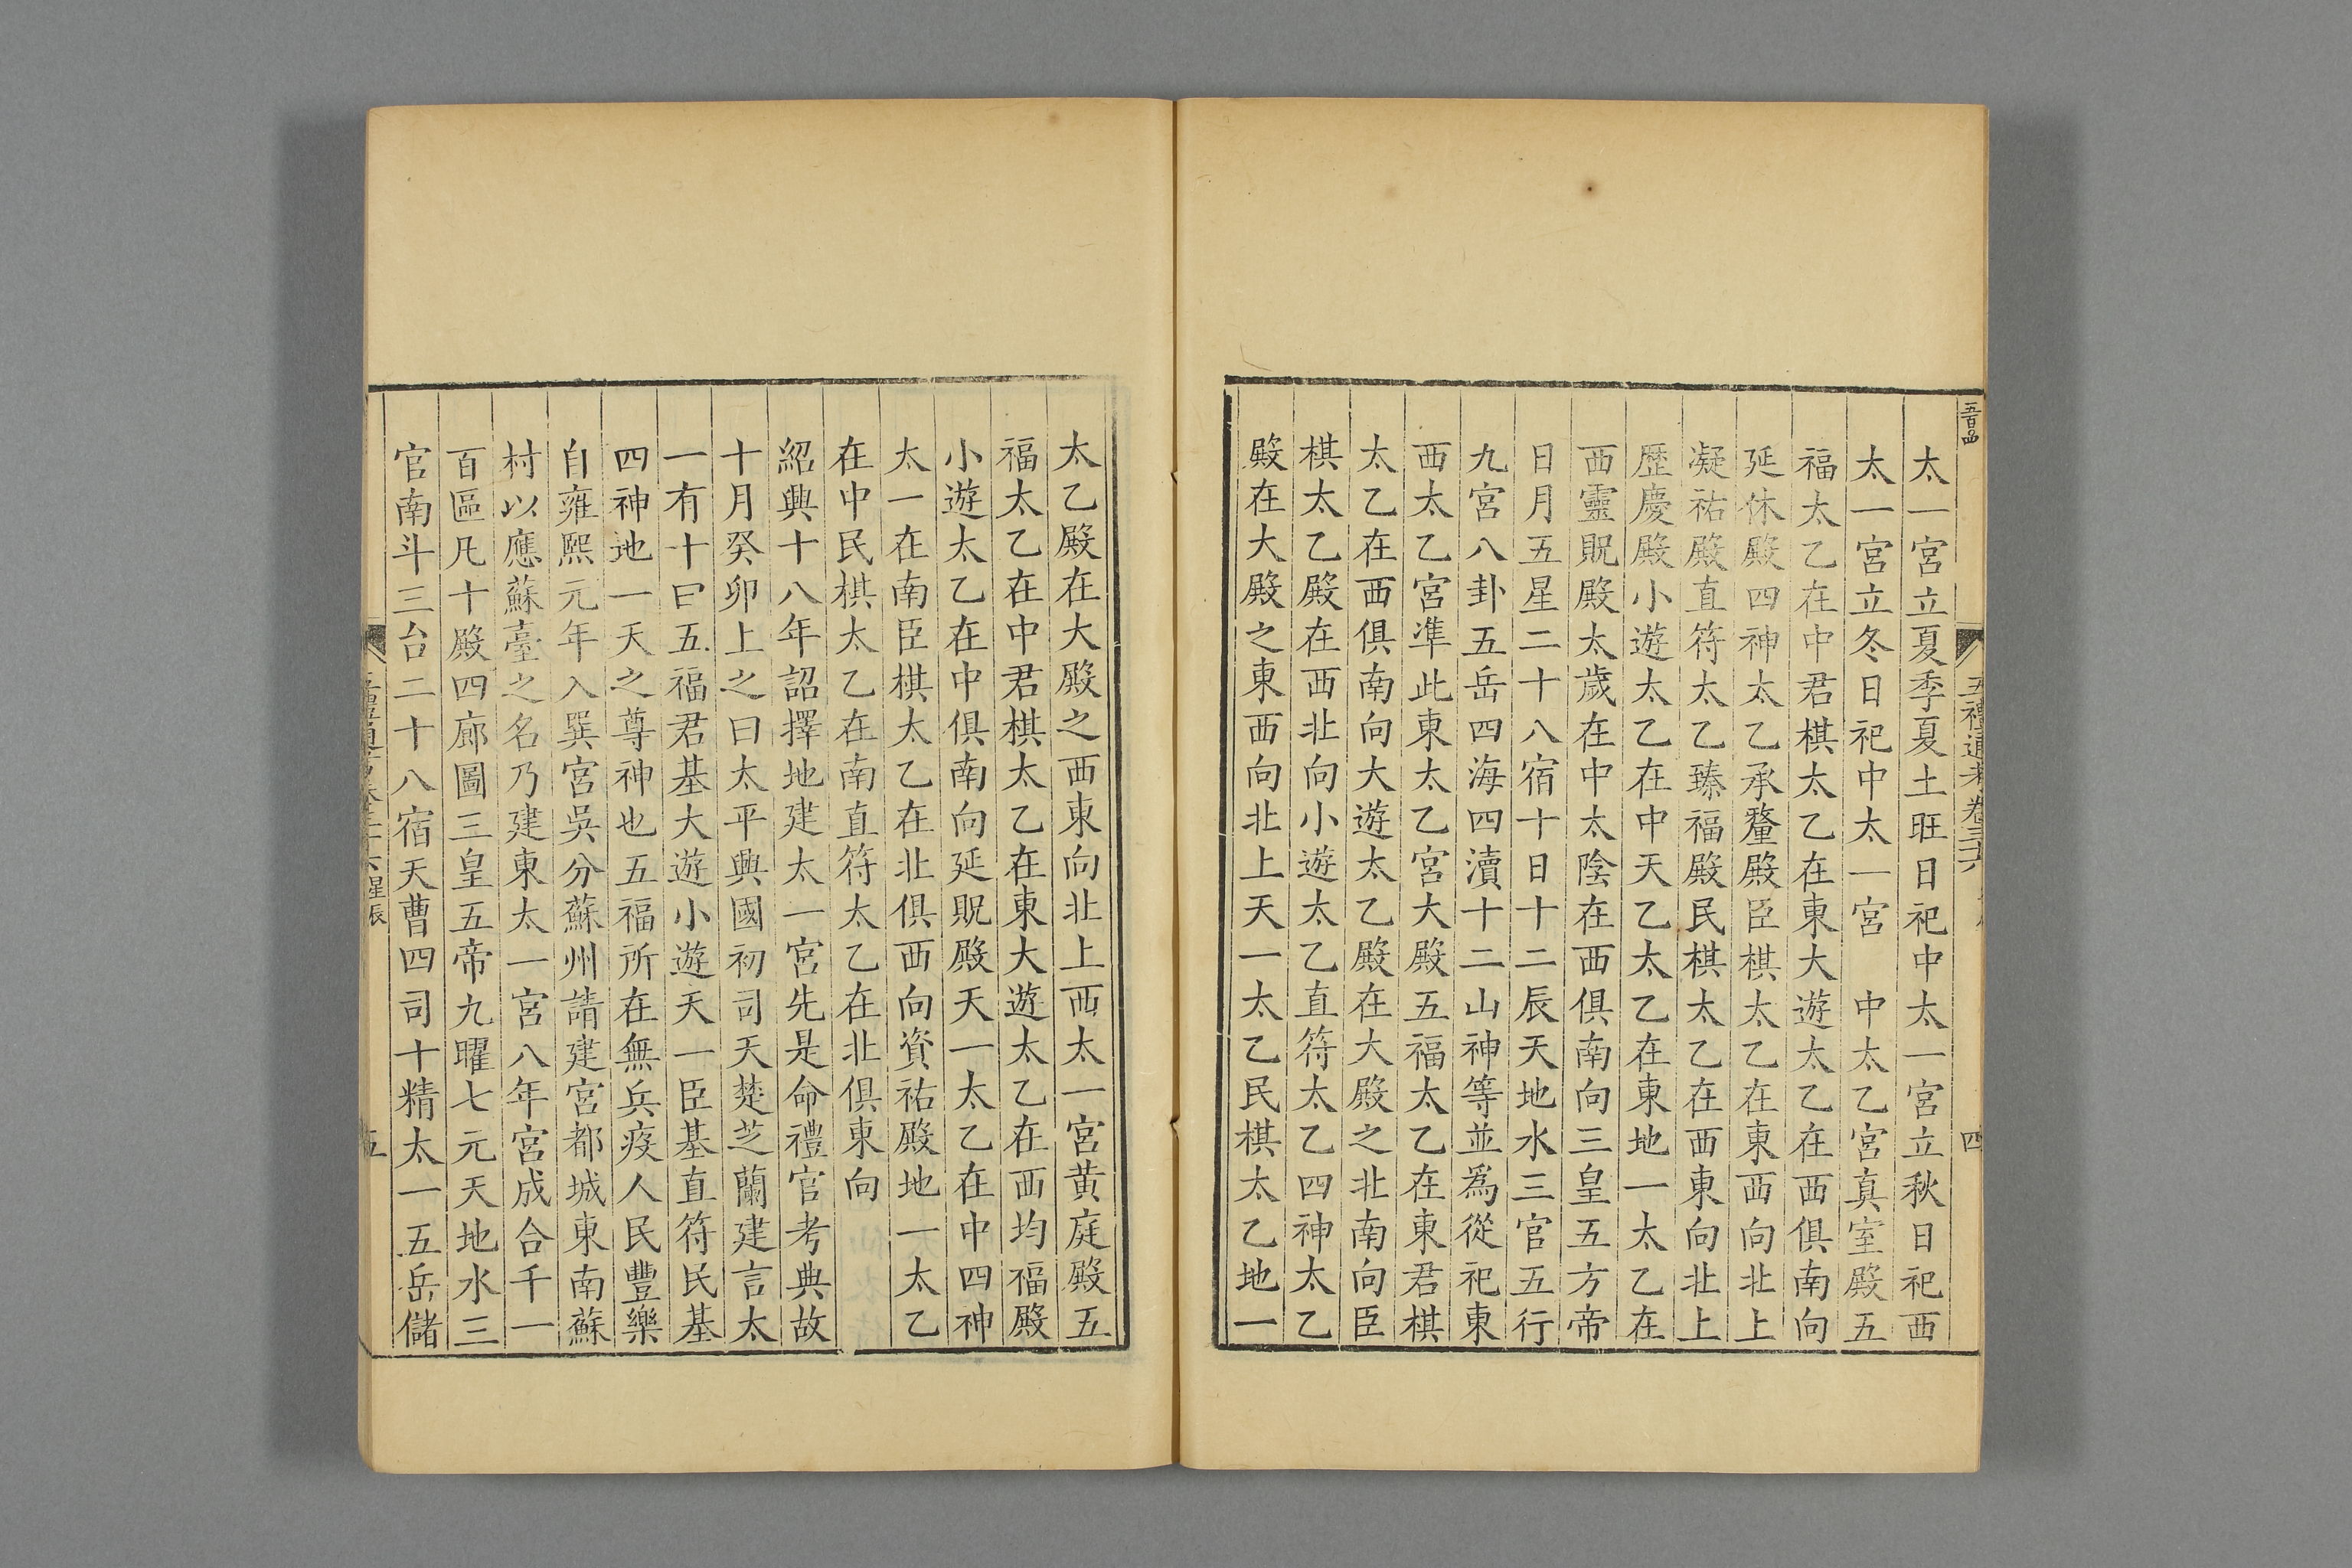 五禮通考卷三十六
四
太一宮立夏季夏土旺日祀中太一宮立秋日祀西
太一宮立冬日祀中太一宮　中太乙宮真室殿五
福太乙在中君棋太乙在東大遊太乙在西俱南向
延休殿四神太乙承釐殿臣棋太乙在東西向北上
凝祐殿直符太乙臻福殿民棋太乙在西東向北上
歴慶殿小遊太乙在中天乙太乙在東地一太乙在
西靈貺殿太歲在中太陰在西俱南向三皇五方帝
日月五星二十八宿十日十二辰天地水三官五行
九宮八卦五岳四海四瀆十二山神等並爲從祀東
西太乙宮準此東太乙宮大殿五福太乙在東君棋
太乙在西俱南向大遊太乙殿在大殿之北南向臣
棋太乙殿在西北向小遊太乙直符太乙四神太乙
殿在大殿之東西向北上天一太乙民棋太乙地一
太乙殿在大殿之西東向北上西太一宮黄庭殿五
福太乙在中君棋太乙在東大遊太乙在西均福殿
小遊太乙在中俱南向延貺殿天一太乙在中四神
太一在南臣棋太乙在北俱西向資祐殿地一太乙
在中民棋太乙在南直符太乙在北俱東向
紹興十八年詔擇地建太一宮先是命禮官考典故
十月癸卯上之曰太平興國初司天楚芝蘭建言太
一有十曰五福君基大遊小遊天一臣基直符民基
四神地一天之尊神也五福所在無兵疫人民豐樂
自雍熙元年入巽宮吳分蘇州請建宮都城東南蘇
村以應蘇臺之名乃建東太一宮八年宮成合千一
百區凡十殿四廊圖三皇五帝九曜七元天地水三
官南斗三台二十八宿天曹四司十精太一五岳儲
五